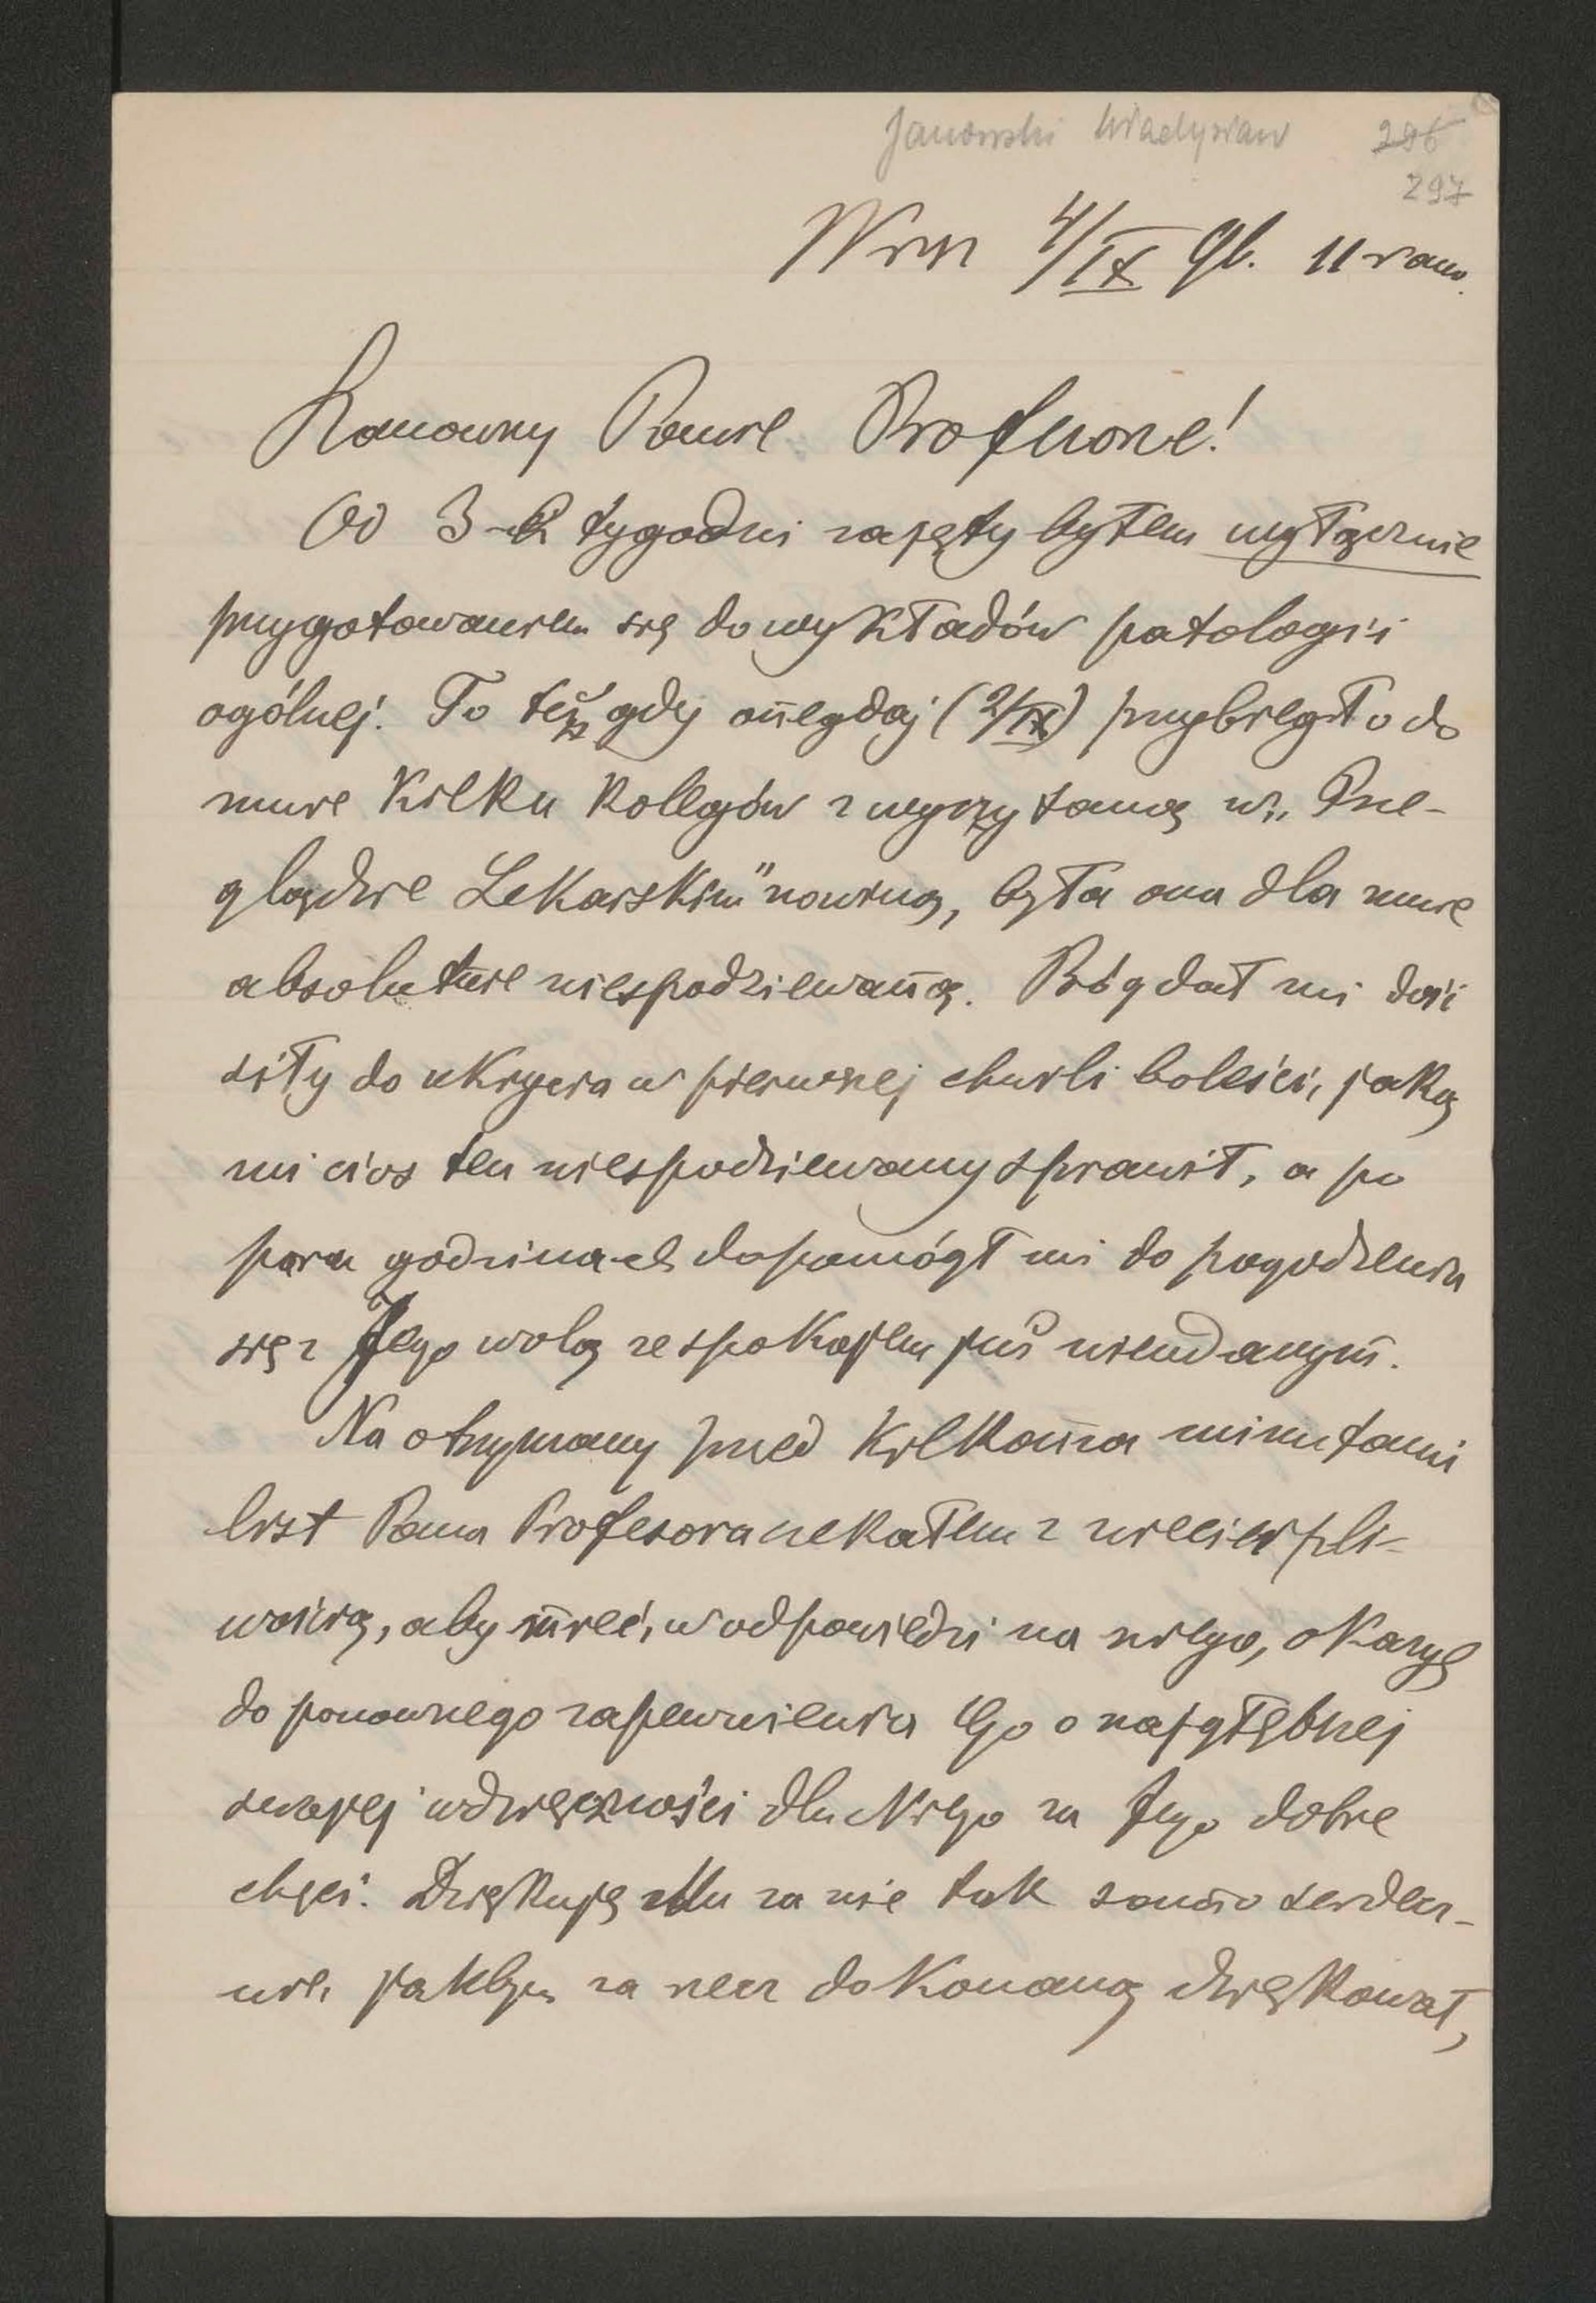 Janowski Władysław 296
297
Wwa 4/IX 96. 11 rano.
Szanowny Panie Profesorze!
Od 3-ch tygodni zajęty byłem wyłącznie
przygotowaniem się do wykładów patologii
ogólnej. To też gdy onegdaj (2/IX) przybiegło do
mnie kilku kolegów z wyczytaną w „Prze-
glądzie Lekarskim" nowiną, była ona dla mnie
absolutnie niespodziewaną. Bóg dał mi dość
siły do ukrycia w pierwszej chwili boleści, jaką
mi cios ten niespodziewany sprawił, a po
paru godzinach dopomógł mi do pogodzenia
się z Jego wolą ze spokojem już nieudanym.
Na otrzymany przed kilkoma minutami
list Pana Profesora czekałem z niecierpli-
wością, aby mieć, w odpowiedzi na niego, okazyę
do ponownego zapewnienia Go o najgłębszej
swojej wdzięczności dla Niego za Jego dobre
chęci. Dziękuję Mu za nie tak samo serdecz-
nie, jakbym za rzecz dokonaną dziękował,